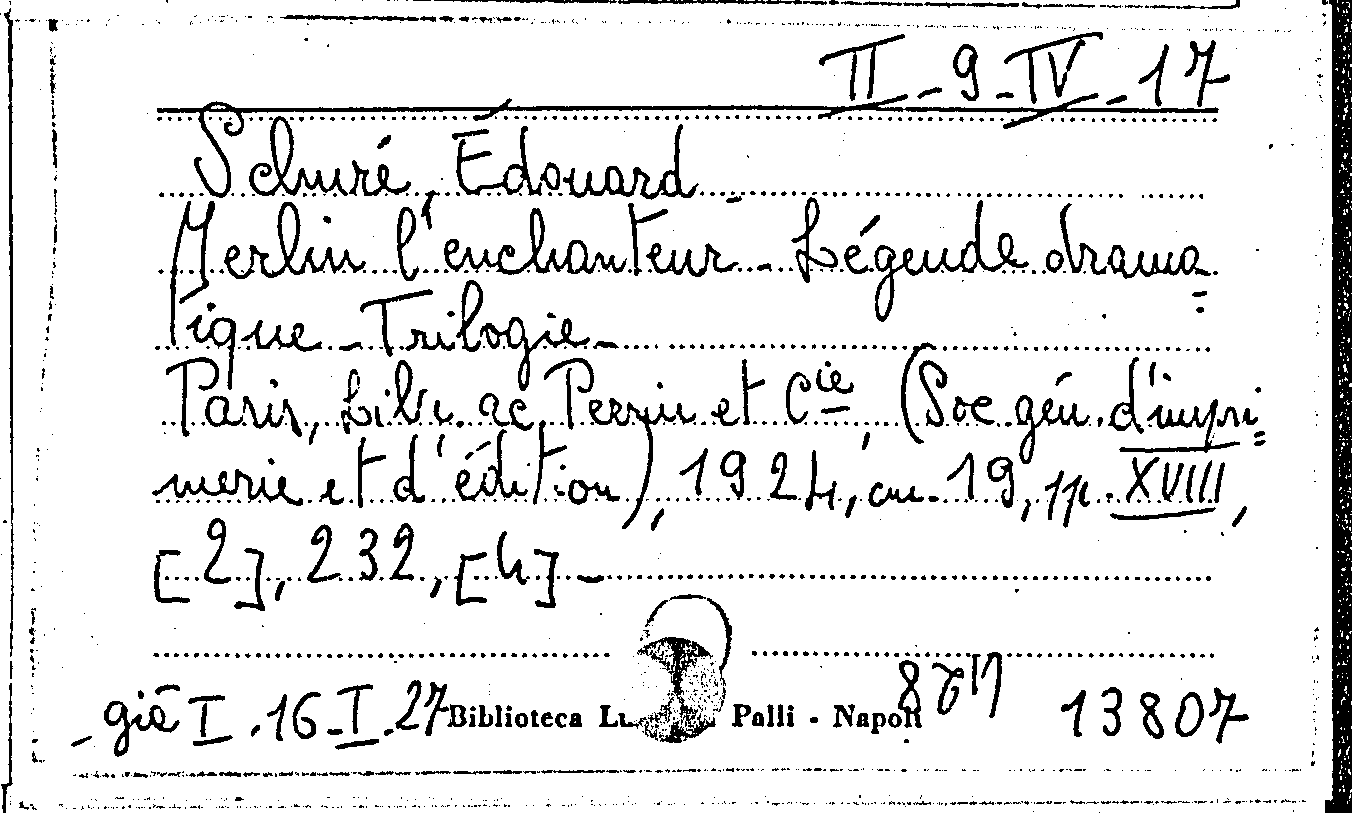 II - 9 - IV - 17
Schuré, Édouard -
Merlin l'enchanteur - Légende drama=
tique - Trilogie -
Paris, Libr. ac. Perrin et Cie, (Soc. gén. d'impri=
merie et d'édition), 1924, cm. 19, pp. XVIII,
[2], 232, [4] -
- già I . 16 - I . 27 Biblioteca Palli - Napoli 13807